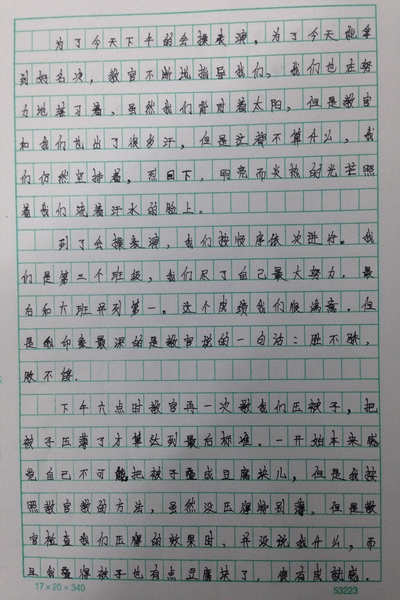 为了今天下午的会操表演，为了今天能拿
到好名次，教官不断地指导我们，我们也在努
力地练习着，虽然我们背对着太阳，但是教官
和我们也出了很多汗，但是这都不算什么，我
们仍然坚持着，烈日下，明亮而炎热的光芒照
着我们流着汗水的脸上。
到了会操表演，我们按顺序依次进行。我
们是第三个班级，我们尽了自己最大努力，最
后和六班并列第一。这个成绩我们很满意。但
是我印象最深的是教官说的一句话：胜不骄，
败不馁.
下午六点时教官再一次教我们压被子，把
被子压薄了才算达到最后标准。一开始本来感
觉自己不可能把被子叠成豆腐块儿，但是我按
照教官教的方法，虽然没压得特别薄，但是教
官检查我们压得的效果时，并没说我什么，而
且我叠得被子也有点豆腐块了，很有成就感.
17×20=340
53223